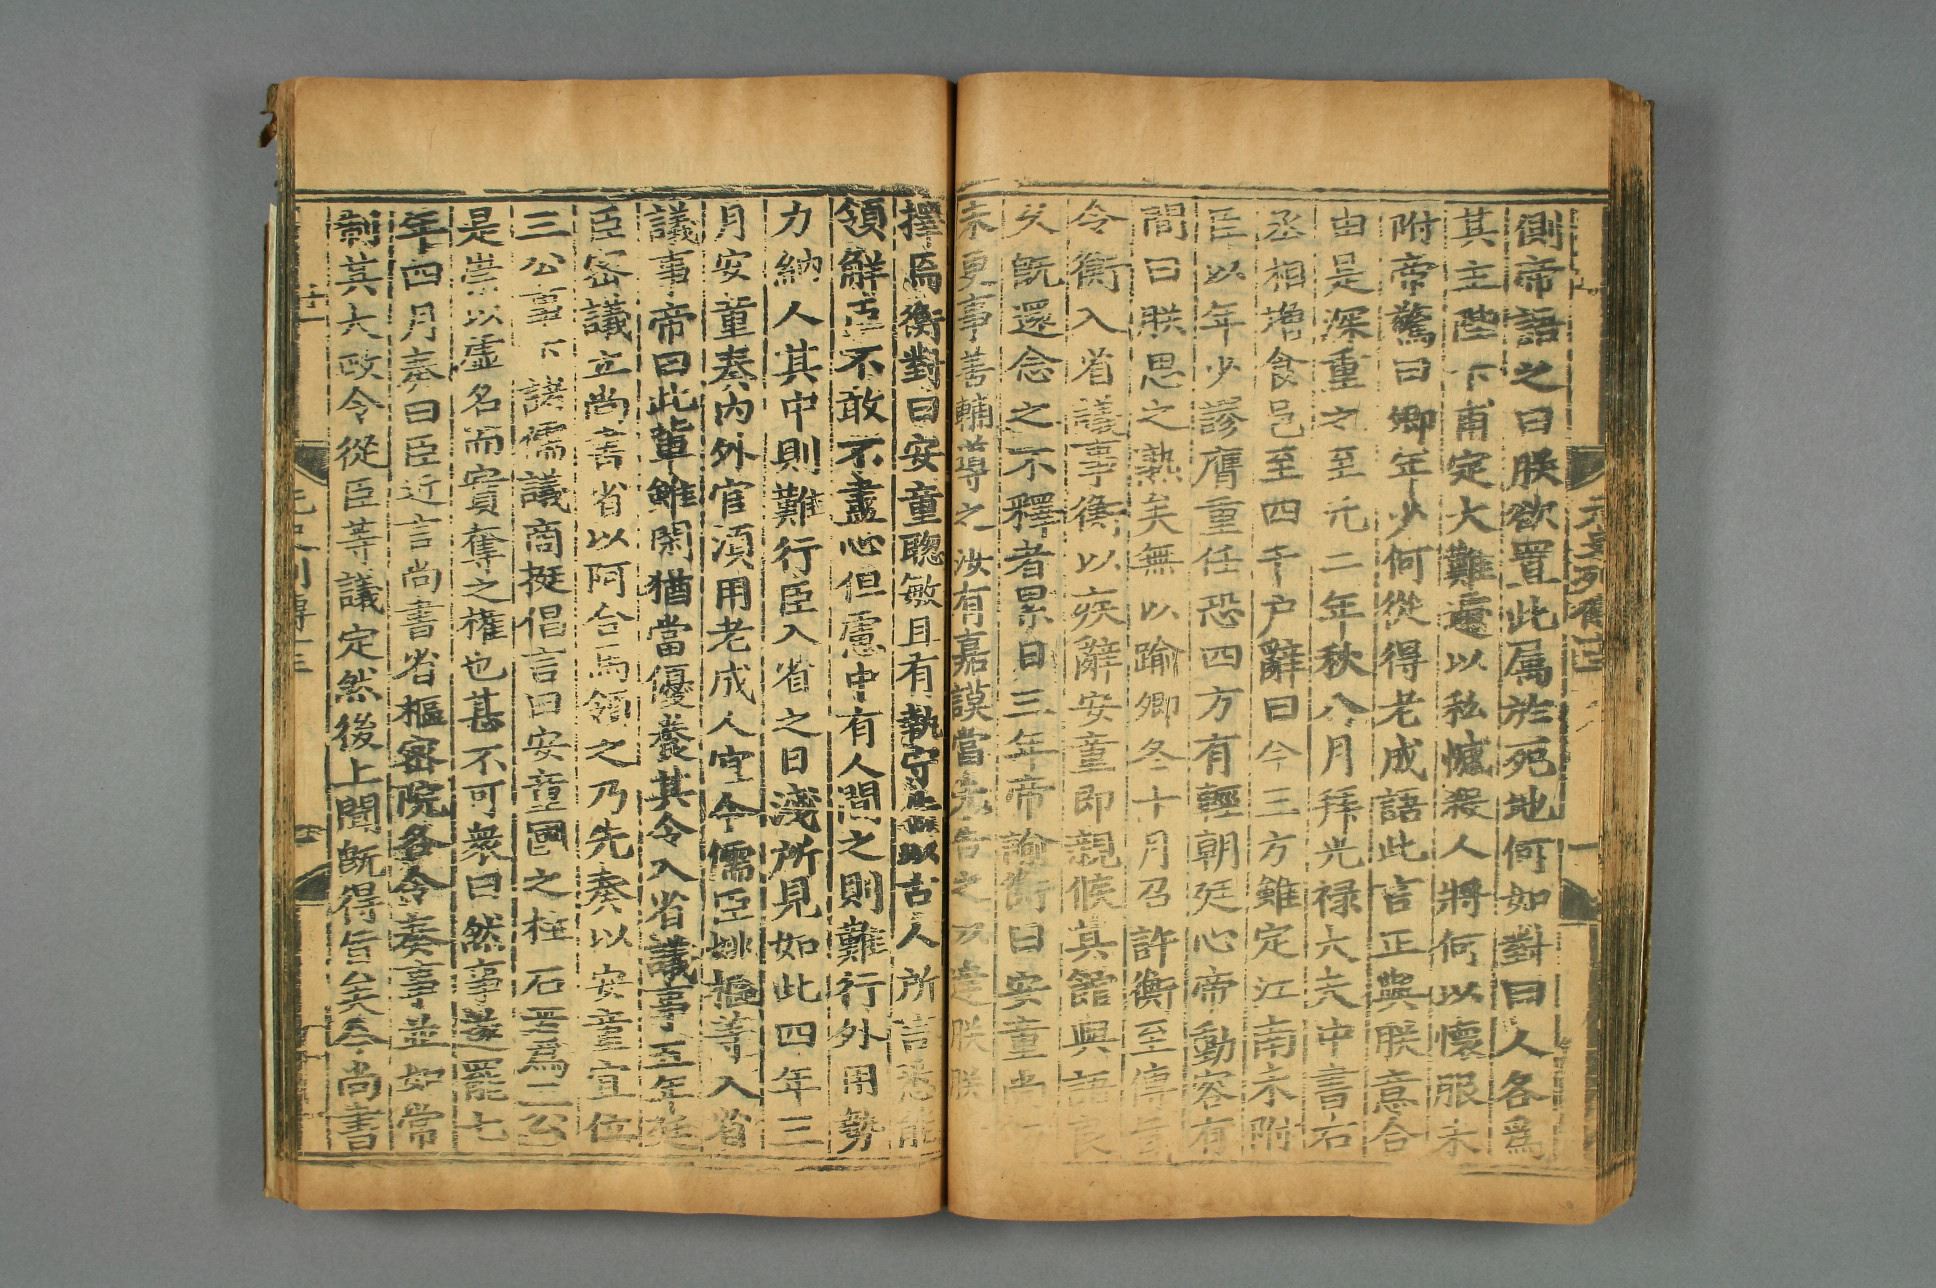 側帝語之曰朕欲置此属於死地何如對曰人各爲
其主陛下甫定大難遽以私憾殺人將何以懷服未
附帝驚曰卿年少何從得老成語此言正與朕意合
由是深重之至元二年秋八月拜光禄大夫中書右
丞相增食邑至四千户辭曰今三方雖定江南未附
臣以年少謬膺重任恐四方有輕朝廷心帝動容有
間曰朕思之熟矣無以踰卿冬十月召許衡至傳旨
令衡入省議事衡以疾辭安童即親候其館與語良
久既還念之不釋者累日三年帝諭衡曰安童尚
未更事善輔導之汝有嘉謨當先告之以達朕朕
擇焉衡對曰安童聰敏且有執守告以古人所言悉能
領解臣不敢不盡心但慮中有人間之則難行外用勢
力納人其中則難行臣入省之日淺所見如此四年三
月安童奏内外官須用老成人宜令儒臣姚樞等入省
議事帝曰此輩雖閑猶當優養其令入省議事五年廷
臣密議立尚書省以阿合馬領之乃先奏以安童宜位
三公事下諸儒議商挺倡言曰安童國之柱石若爲三公
是崇以虚名而實奪之權也甚不可衆曰然事遂罷七
年四月奏曰臣近言尚書省樞密院各令奏事並如常
制其大政令從臣等議定然後上聞既得旨矣今尚書
元史列傳十三